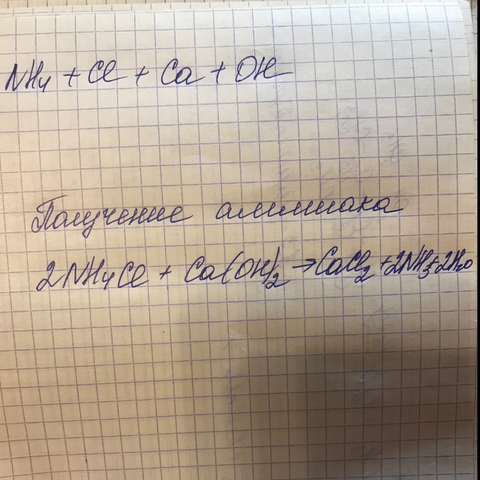 NH4 + Cl + Ca + OH
Получение аммиака
2NH4Cl + Ca(OH)2 → CaCl2 + 2NH3 + 2H2O